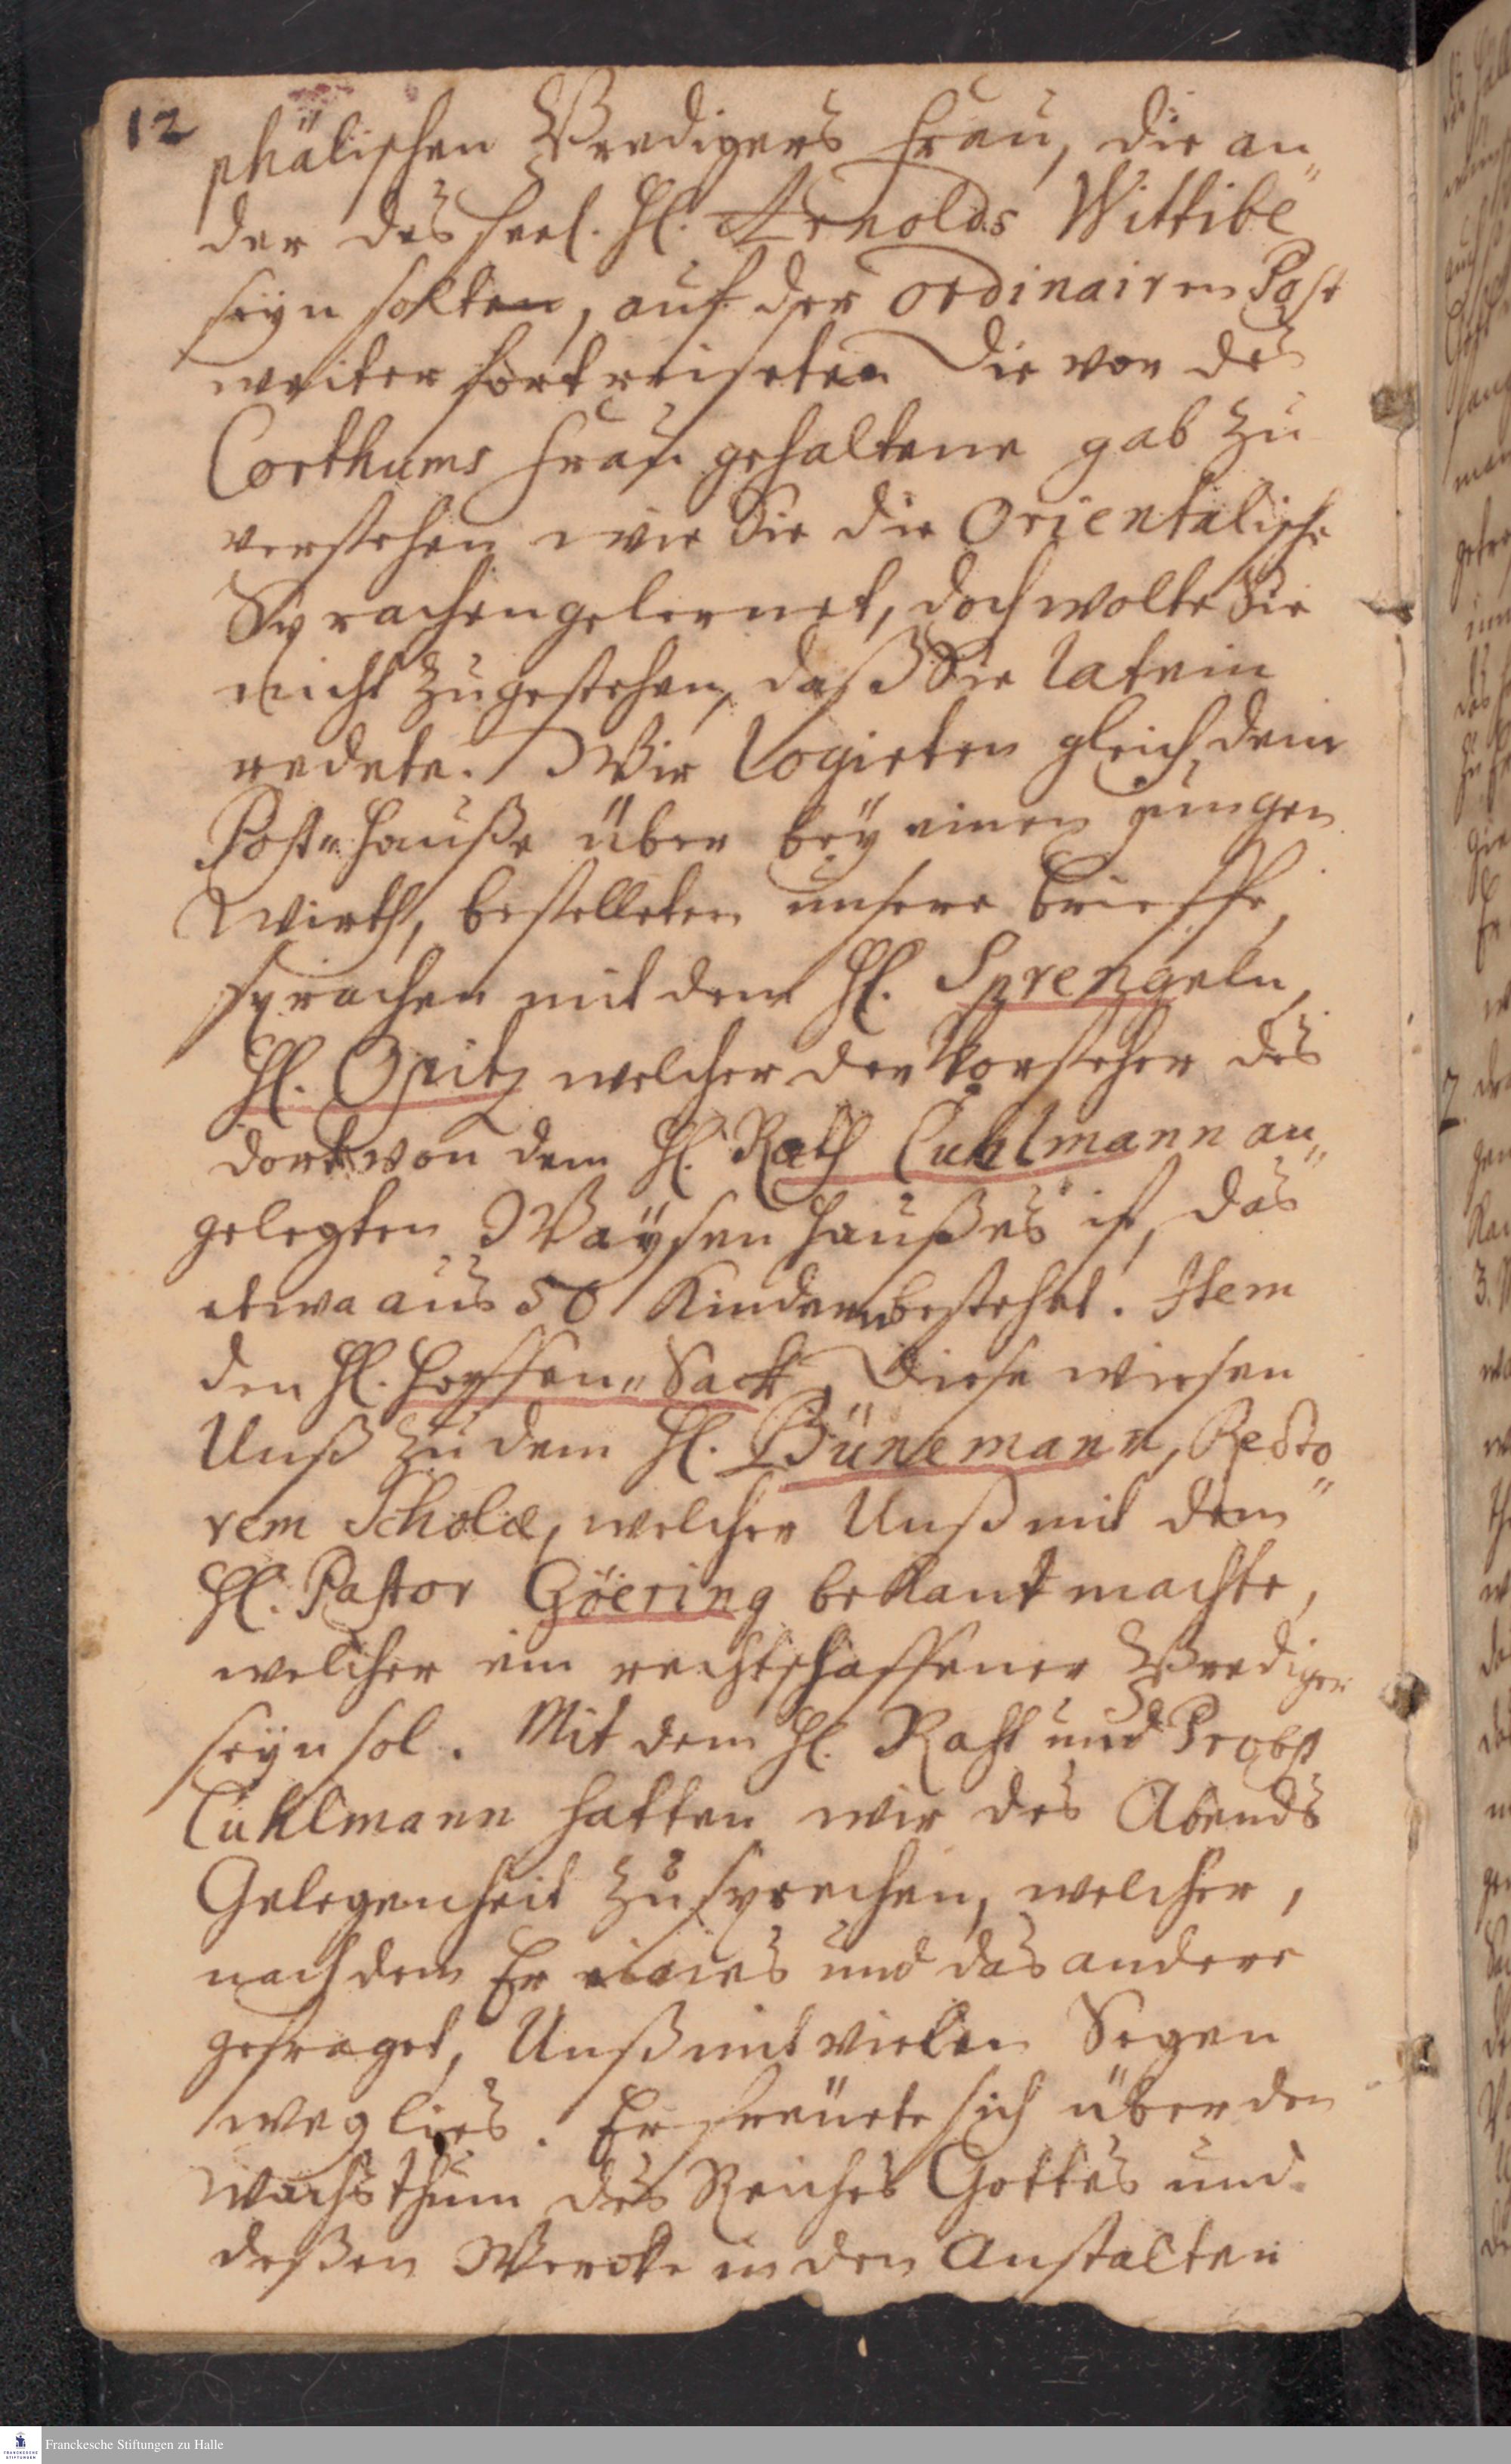 12
phälischen Predigers Frau, die an„
der des seel. Hl. Arnolds Wittibe
seyn solten, auf der ordinairen Post
weiter fortreiseten. Die vor des
Corthums Frau gehaltene gab zu
verstehen wie Sie die Orientalische
Sprachen gelernet, doch wolte Sie
nicht zugestehen, daß Sie latein
redete. Wir logirten gleich dem
Post„hauße über bey einen jungen
Wirth, bestelleten unsere brieffe,
sprachen mit dem Hl. Sprengeln,
Hl. Opitz welcher der Vorsteher des
dort von dem Hl. Rath Cuhlmann an„
gelegten Waysen haußes ist, das
etwa aus 50 Kindern bestehet. Item
den Hl. Hossen„Sack, Diese wiesen
Unß zu dem Hl. Bünemann, Recto„
rem Scholæ, welcher Unß mit dem
Hl. Pastor Göering bekant machte,
welcher ein rechtschaffener Prediger
seyn sol. Mit dem Hl. Raht und Probst
Cuhlmann hatten wir des Abends
Gelegenheit zu sprechen, welcher,
nach dem Er eines und das andere
gefraget, Unß mit vielen Segen
weg lies. Er freüete sich über den
Wachsthum des Reiches Gottes und
deßen Wercke in den Anstalten
Franckesche Stiftungen zu Halle